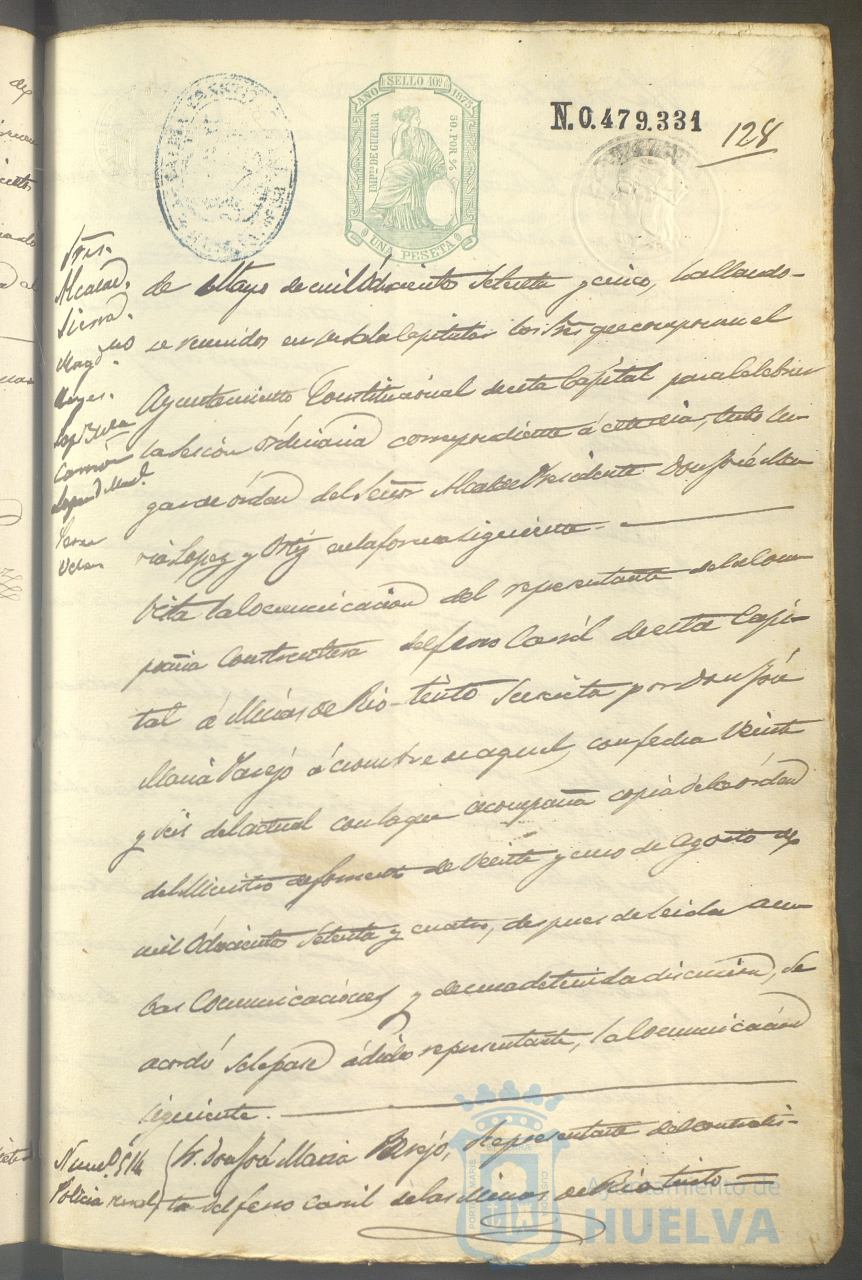 AÑO SELLO 10º 1875
IMPto DE GUERRA
50 POR %
UNA PESETA
N. 0.479.331
128
Sres.
Alcalde
Sierra
Reyes
de Mayo de mil Ochocientos Setenta y cinco, hallando-
se reunidos en la Sala Capitular los Sres que componen el
Ayuntamiento Constitucional de esta Capital para celebrar
la sesion órdinaria correspondiente á este dia, tubo lu-
gar de órden del Señor Alcalde Presidente Don José Ma
ria Lopez y Ortiz en la forma siguiente
Vista la Comunicacion del representante de la Com
pañia Constructora del ferro Carril de esta Capi-
tal á Minas de Rio-tinto Suscrita por Don José
Maria Parejo á nombre de aquel, con fecha Veinte
y seis del actual con la que acompaña copia de la órden
del Ministro de fomento de Veinte y cinco de Agosto de
mil Ochociento Setenta y cuatro, despues de leida am
bas Comunicaciones y de una detenida discusion, se
acordó se le pase á dicho representante, la Comunicacion
siguiente.
Policia rural
Sr. Don José Maria Parejo, representante del contratis-
ta del ferro carril de las Minas de Rio tinto
Ayuntamiento de
HUELVA